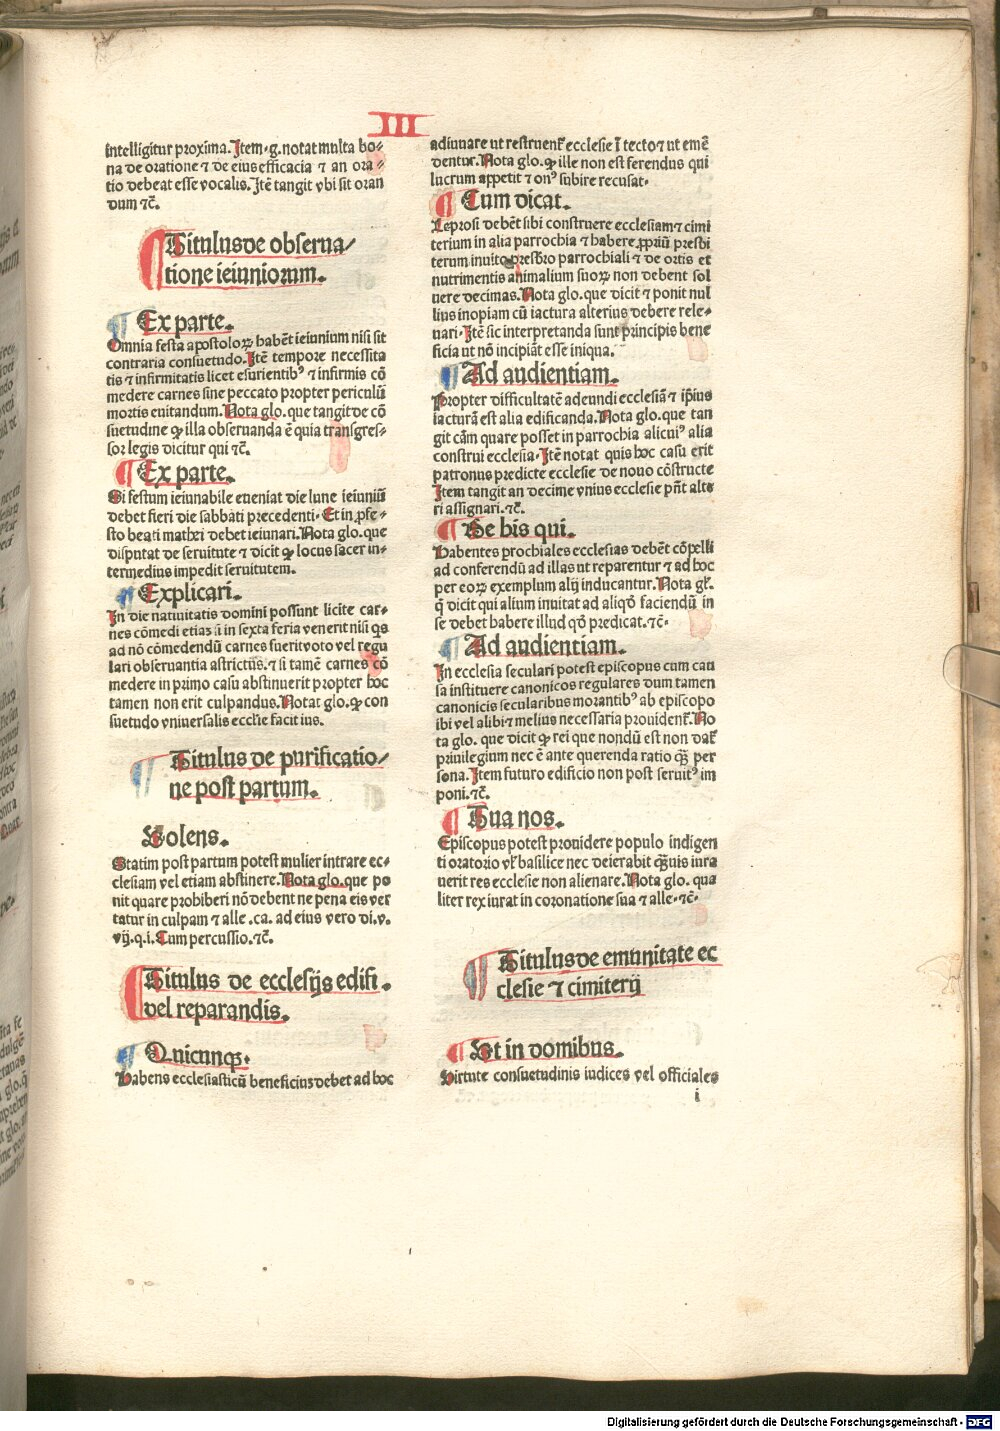 III
intelligitur proxima. Item .g. notat multa bo-
na de oratione ⁊ de eius efficacia ⁊ an ora-
tio debeat esse vocalis. Itē tangit vbi sit oran
dum ⁊c̄.
Titulus de obserua/
tione ieiuniorum.
Ex parte.
Omnia festa apostoloꝝ habēt ieiunium nisi sit
contraria consuetudo. Itē tempore necessita
tis ⁊ infirmitatis licet esurientibꝰ ⁊ infirmis cō
medere carnes sine peccato propter periculū
mortis euitandum. Nota glo. que tangit de cō
suetudine ꝙ illa obseruanda ē quia transgres-
sor legis dicitur qui ⁊c̄.
Ex parte.
Si festum ieiunabile eueniat die lune ieiuniū
debet fieri die sabbati precedenti. Et in ꝓfe-
sto beati mathei debet ieiunari. Nota glo. que
disputat de seruitute ⁊ dicit ꝙ locus sacer in-
termedius impedit seruitutem.
Explicari.
In die natiuitatis domini possunt licite car-
nes cōmedi etiaʒ si in sexta feria venerit nisi qs
ad nō cōmedendū carnes fuerit voto vel regu
lari obseruantia astrictus. ⁊ si tamē carnes cō
medere in primo casu abstinuerit propter hoc
tamen non erit culpandus. Notat glo. ꝙ con
suetudo vniuersalis eccl̄ie facit ius.
Titulus de purificatio/
ne post partum.
Volens.
Statim post partum potest mulier intrare ec-
clesiam vel etiam abstinere. Nota glo. que po
nit quare prohiberi nō debent ne pena eis ver
tatur in culpam ⁊ alle .ca. ad eius vero di. v.
vij. q. i. Cum percussio. ⁊c̄.
Titulus de ecclesijs edifi.
vel reparandis.
Quicunqꝫ.
Habens ecclesiasticū beneficiuʒ debet ad hoc
adiuuare ut restruent̄ ecclesie ī tecto ⁊ ut emē
dentur. Nota glo. ꝙ ille non est ferendus qui
lucrum appetit ⁊ onꝰ subire recusat.
Cum dicat.
Leprosi debēt sibi construere ecclesiam ⁊ cimi
terium in alia parrochia ⁊ habere ꝓpriū presbi
terum inuito presbr̄o parrochiali ⁊ de ortis et
nutrimentis animalium suoꝝ non debent sol
uere decimas. Nota glo. que dicit ⁊ ponit nul
lius inopiam cū iactura alterius debere rele-
uari. Itē sic interpretanda sunt principis bene
ficia ut nō incipiāt esse iniqua.
Ad audientiam.
Propter difficultatē adeundi ecclesiā ⁊ ip̄ius
iacturā est alia edificanda. Nota glo. que tan
git cām quare posset in parrochia alicuiꝰ alia
construi ecclesia. Itē notat quis hoc casu erit
patronus predicte ecclesie de nouo cōstructe
Item tangit an decime vnius ecclesie pn̄t alte
ri assignari. ⁊c̄.
De his qui.
Habentes prochiales ecclesias debēt cōpelli
ad conferendū ad illas ut reparentur ⁊ ad hoc
per eoꝝ exemplum alij inducantur. Nota gl̄.
q̄ dicit qui alium inuitat ad aliqd̄ faciendū in
se debet habere illud qd̄ predicat. ⁊c̄.
Ad audientiam.
In ecclesia seculari potest episcopus cum cau
sa instituere canonicos regulares dum tamen
canonicis secularibus morantibꝰ ab episcopo
ibi vel alibi ⁊ melius necessaria prouident̄. No
ta glo. que dicit ꝙ rei que nondū est non dat̄
priuilegium nec ē ante querenda ratio qꝫ per
sona. Item futuro edificio non post seruitꝰ im
poni. ⁊c̄.
Tua nos.
Episcopus potest prouidere populo indigen
ti oratorio vl̄ basilice nec deierabit qꝫuis iura
uerit res ecclesie non alienare. Nota glo. qua
liter rex iurat in coronatione sua ⁊ alle. ⁊c̄.
Titulus de emunitate ec
clesie ⁊ cimiterij
Et in domibus.
Virtute consuetudinis iudices vel officiales
i
Digitalisierung gefördert durch die Deutsche Forschungsgemeinschaft - DFG